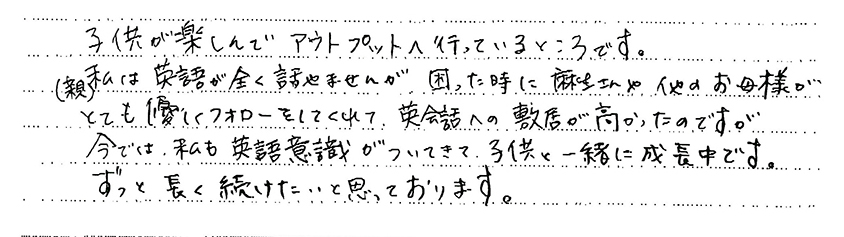 子供が楽しんでアウトプットへ行っているところです。
(親)私は英語が全く話せませんが、困った時に麻生さんや他のお母様が
とても優しくフォローをしてくれて、英会話への敷居が高かったのですが
今では、私も英語意識がついてきて、子供と一緒に成長中です。
ずっと長く続けたいと思っております。